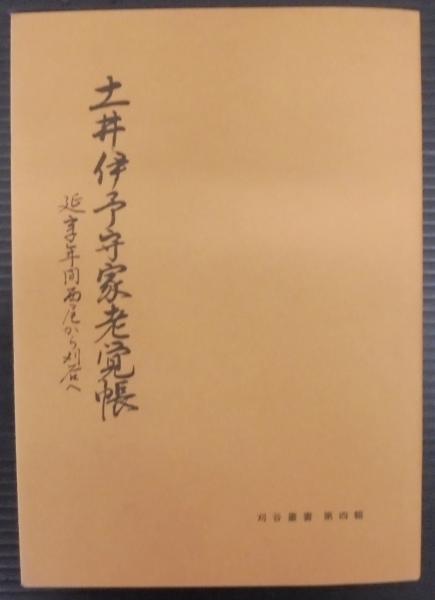 土井伊予守家老覚帳
延享年間西尾から刈谷へ
刈谷叢書 第四輯